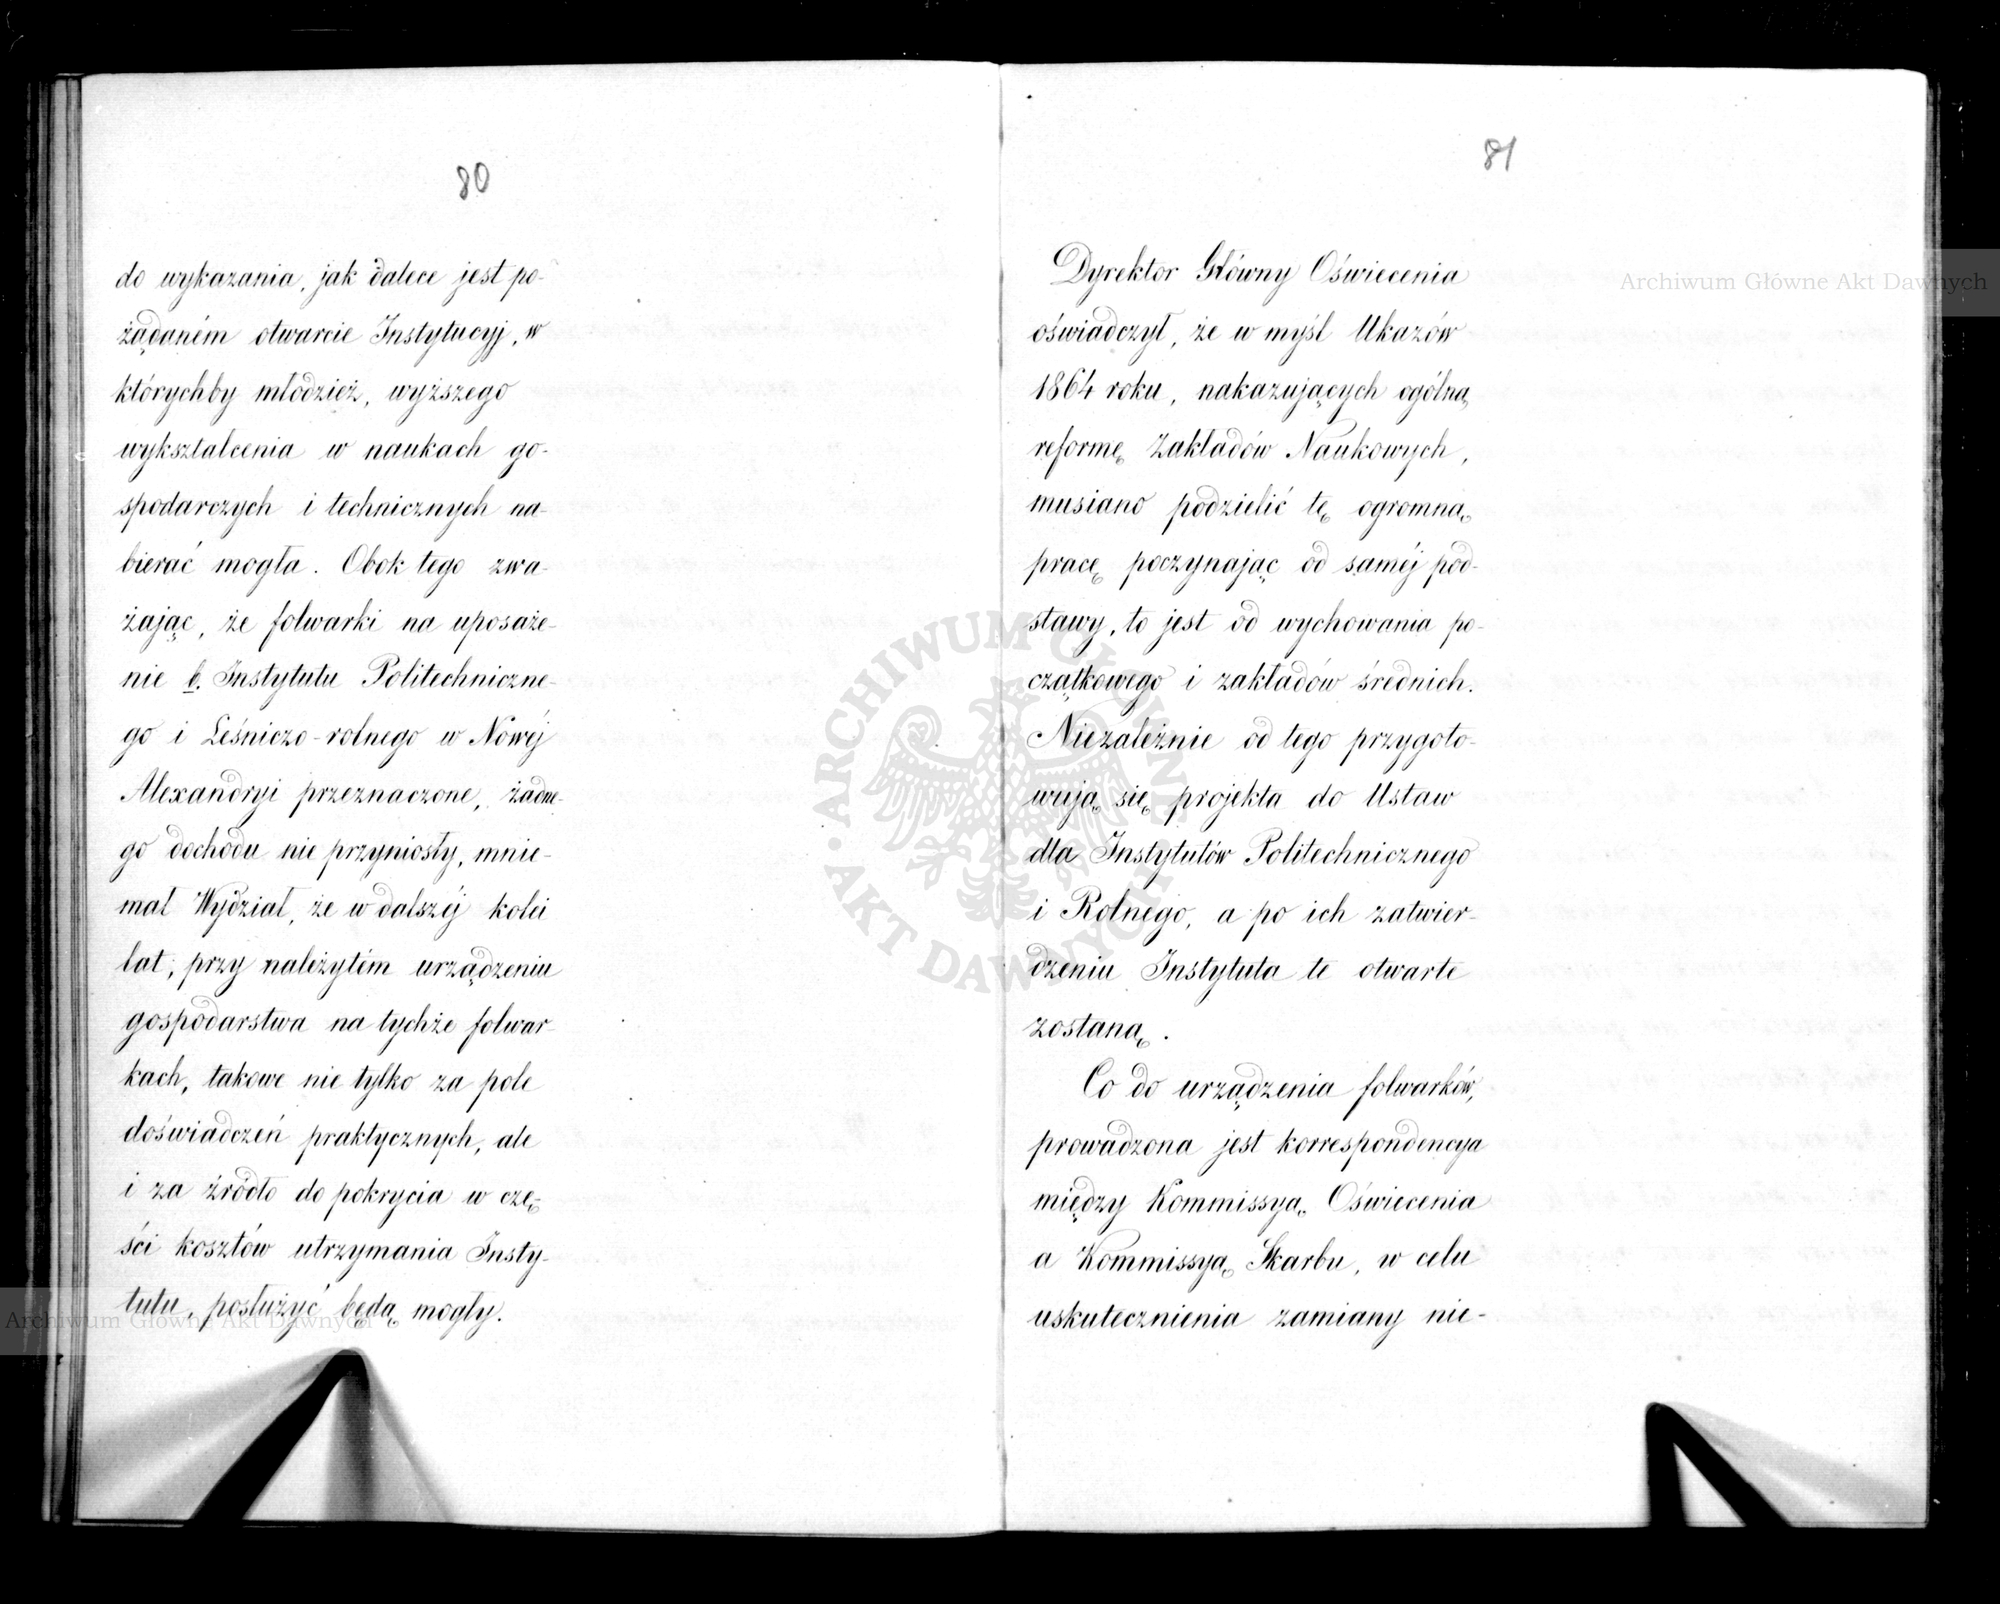 80
do wykazania, jak dalece jest po-
żądaném otwarcie Instytucyj, w
którychby młodzież, wyższego
wykształcenia w naukach go-
spodarczych i technicznych na-
bierać mogła. Obok tego zwa-
żając, że folwarki na uposaże-
nie b. Instytutu Politechniczne-
go i Leśniczo-rolnego w Nowéj
Alexandryi przeznaczone, żadne-
go dochodu nie przyniosły, mnie-
mał Wydział, że w dalszéj kolei
lat, przy należytém urządzeniu
gospodarstwa na tychże folwar-
kach, takowe nie tylko za pole
doświadczeń praktycznych, ale
i za źródło do pokrycia w czę-
ści kosztów utrzymania Insty-
tutu, posłużyć będą mogły.
81
Dyrektor Główny Oświecenia
oświadczył, że w myśl Ukazów
1864 roku, nakazujących ogólną
reformę Zakładów Naukowych,
musiano podzielić tę ogromną
pracę poczynając od saméj pod-
stawy, to jest od wychowania po-
czątkowego i zakładów średnich.
Niezależnie od tego przygoto-
wują się projekta do Ustaw
dla Instytutów Politechnicznego
i Rolnego, a po ich zatwier-
dzeniu Instytuta te otwarte
zostaną.
Co do urządzenia folwarków,
prowadzona jest korrespondencya
między Kommissyą Oświecenia
a Kommissyą Skarbu, w celu
uskutecznienia zamiany nie-
Archiwum Główne Akt Dawnych
ARCHIWUM GŁÓWNE • AKT DAWNYCH •
Archiwum Główne Akt Dawnych